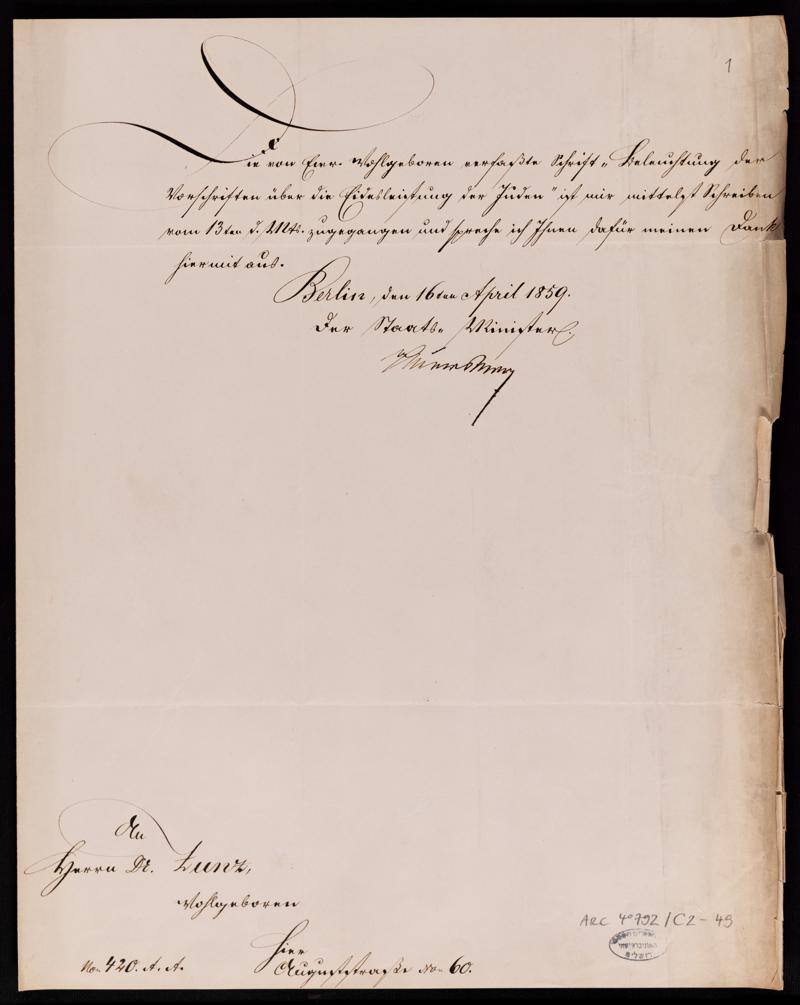 1
Die von Euer Wohlgeboren verfaßte Schrift „Beleuchtung der
Vorschriften über die Eidesleistung der Juden" ist mir mittelst Schreiben
vom 13ten d. Mts. zugegangen und spreche ich Ihnen dafür meinen Dank
hiermit aus.
Berlin, den 16ten April 1859.
Der Staats-Minister
An
Herrn Dr. Zunz,
Wohlgeboren
Hier
No 420. A. A.
Auguststraße No 60.
ARC 4° 792/C2-49